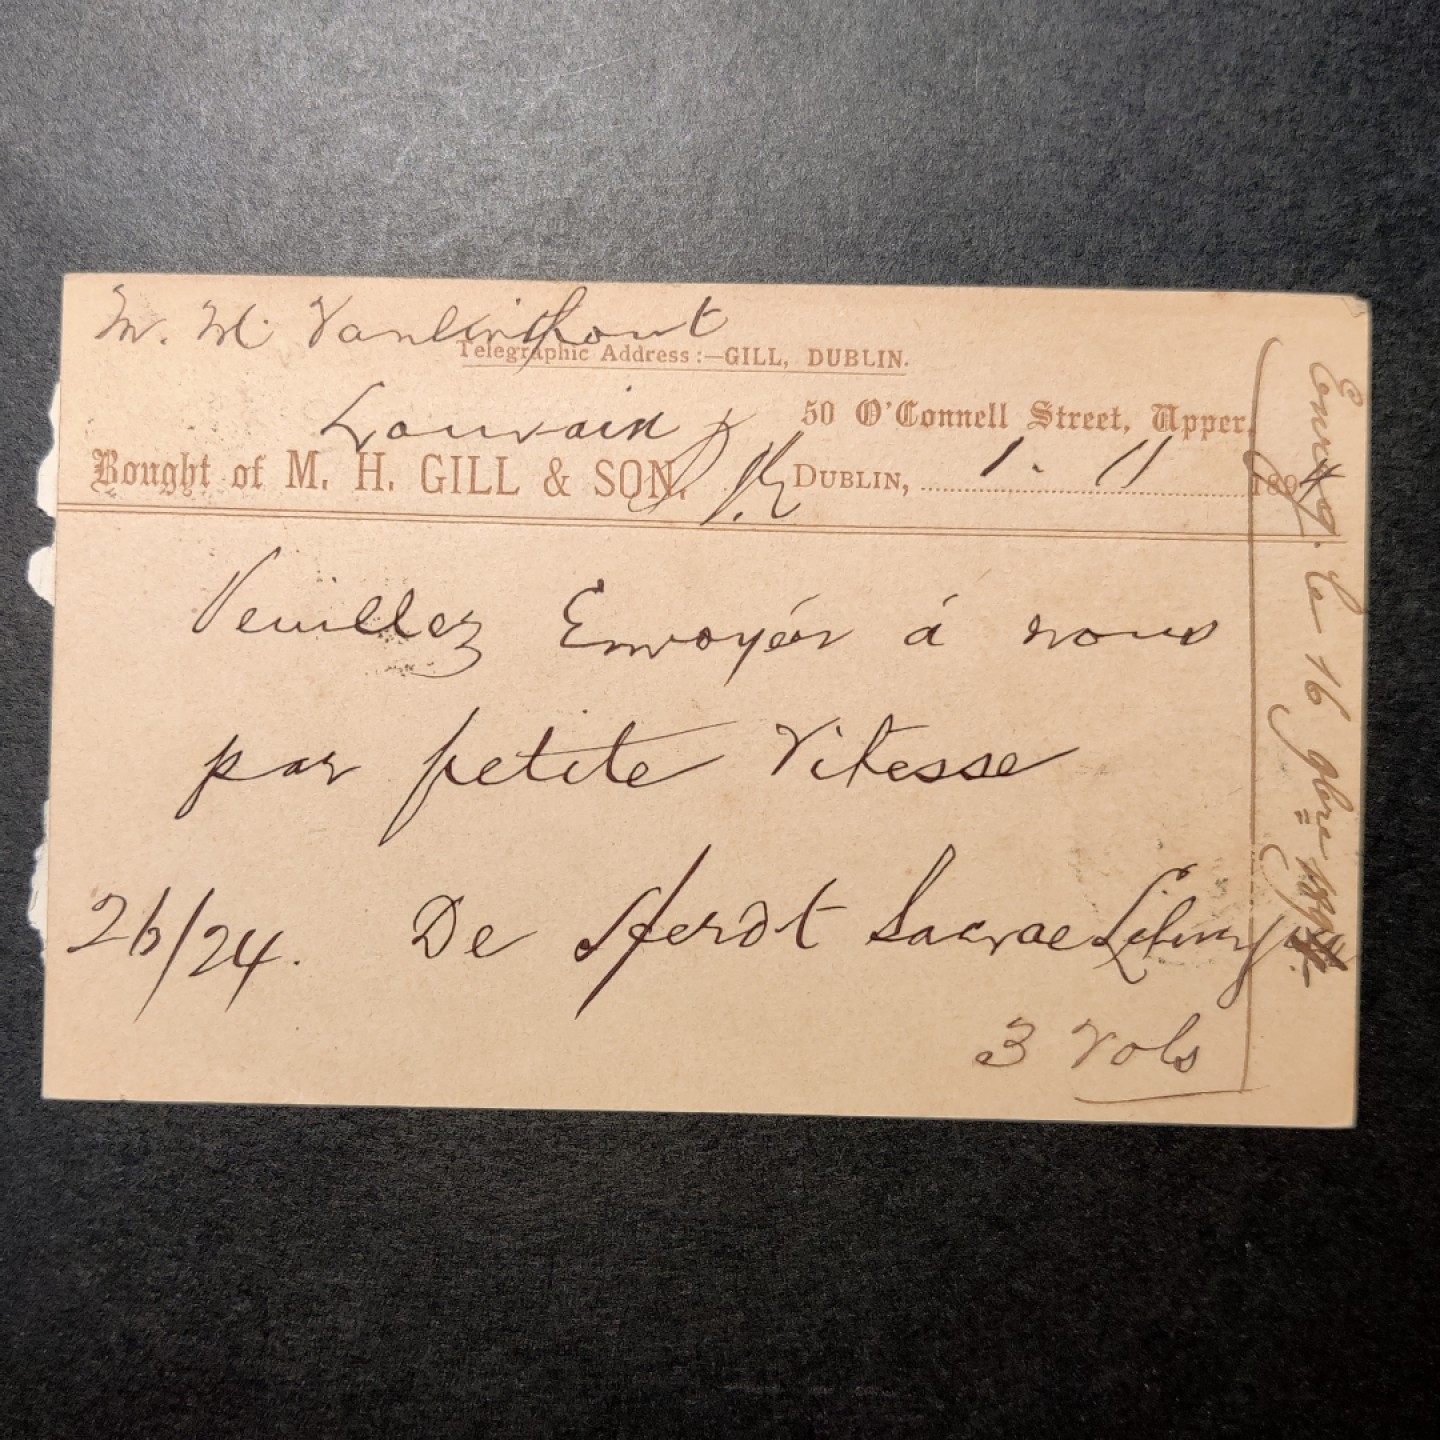 M. M. Vanlinthout
Telegraphic Address:—GILL, DUBLIN.
Louvain
50 O'Connell Street, Upper,
Bought of M. H. GILL & SON.
DUBLIN, 1. 11 1894
Veuillez Envoyér á nous
par petite Vitesse
26/24. De Herdt Sacrae Liturg
3 Vols
Envoyé. le 16 9bre 1894